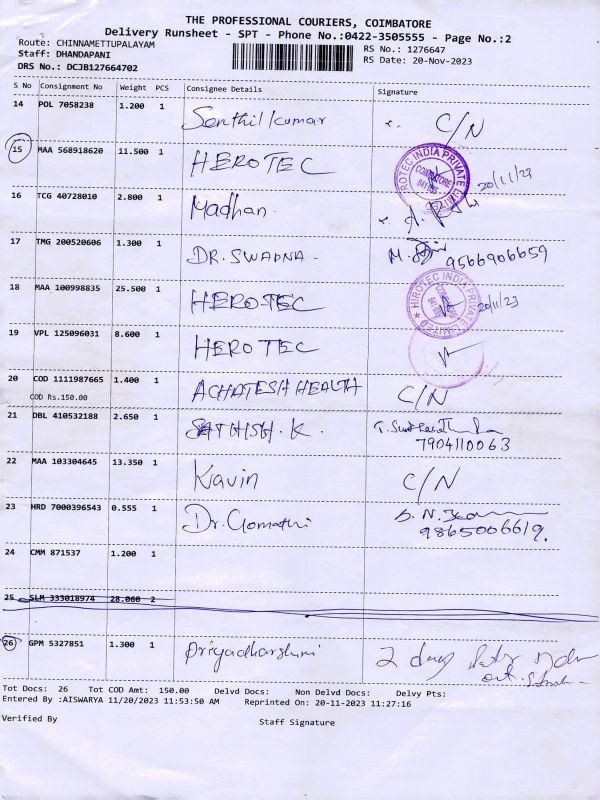 THE PROFESSIONAL COURIERS, COIMBATORE
Delivery Runsheet - SPT - Phone No.:0422-3505555 - Page No.:2
Route: CHINNAMETTUPALAYAM
RS No.: 1276647
Staff: DHANDAPANI
RS Date: 20-Nov-2023
DRS No.: DCJB127664702
S No Consignment No Weight PCS Consignee Details Signature
14 POL 7058238 1.200 1 Senthil kumar C/N
15 MAA 568918620 11.500 1 HEROTEC HIROTEC INDIA PRIVATE LIMITED COIMBATORE 20/11/23
16 TCG 40728010 2.800 1 Madhan.
17 TMG 200520606 1.300 1 DR. SWAPNA - 9566906659
18 MAA 100998835 25.500 1 HEROTEC HIROTEC INDIA PRIVATE LIMITED 20/11/23
19 VPL 125096031 8.600 1 HEROTEC
20 COD 1111987665 1.400 1 ACHATESH HEALTH C/N
COD Rs.150.00
21 DBL 410532188 2.650 1 SATHISH. K. 7904110063
22 MAA 103304645 13.350 1 Kavin C/N
23 HRD 7000396543 0.555 1 Dr. Gomathi 9865006619.
24 CMM 871537 1.200 1
25 SLM 333018974 28.060 2
26 GPM 5327851 1.300 1 Priyadharshini 2 days
Tot Docs: 26 Tot COD Amt: 150.00 Delvd Docs: Non Delvd Docs: Delvy Pts:
Entered By :AISWARYA 11/20/2023 11:53:50 AM Reprinted On: 20-11-2023 11:27:16
Verified By Staff Signature